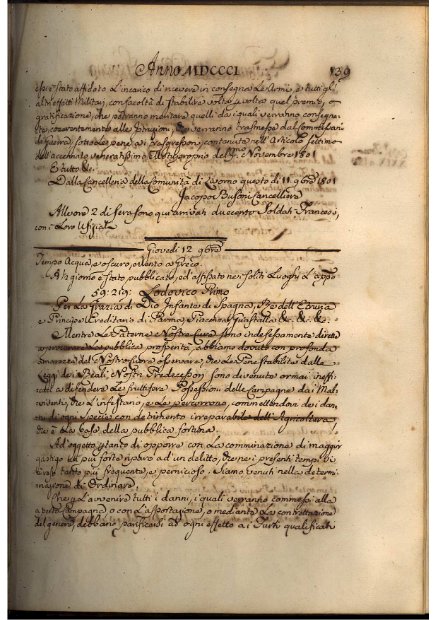 Anno MDCCCI.
139
è stato affidato l'incarico di ricevere in consegna le Armi, e tutti gli
altri effetti Militari, con facoltà di stabilire volta per volta quel premio, o
gratificazione, che potranno meritare quelli da i quali verranno consegnate
coerentemente alle Istruzioni, che verranno trasmesse dal
di Guerra sotto le pene ai Trasgressori, contenute nell'Articolo Settimo
dell'accennata proprio del dì 2 Novembre 1801
E tutto &c.
Dalla Cancelleria della Comunità di Livorno questo dì 11 9bre 1801
Jacopo Busoni Cancelliere
Alle ore 2 di sera sono quì arrivati duecento Soldati Francesi,
con i loro Ufiziali
Giovedì 12 9bre
Tempo Acqua, e oscuro, vento a Greco.
A dì giorno è stato pubblicato, ed affisso nei soliti Luoghi l'appo
59: 219: Lodovico Primo
Per la Grazia di Dio Infante di Spagna, Re dell'Etruria
e Principe Ereditario di Parma, Piacenza, Guastalla &c. &c. &c.
Mentre le Paterne Nostre Cure sono indefessamente dirette
a promuovere la pubblica prosperità, abbiamo dovuto con profonda
amarezza del Nostro Cuore osservare, che le Pene stabilite dalle
Leggi dei Reali Nostri Predecessori sono divenute ormai insufficienti
a difendere le fruttifere Possessioni delle Campagne da i Malviventi,
che l'infestano, e le percorrono, commettendovi dei danni
di ogni specie con detrimento irreparabile dell'Agricoltura,
che è la base della pubblica fortuna.
Ad oggetto pertanto di opporre con la comminazione di maggior
gastigo un più forte riparo ad un delitto, che nei presenti tempi
tanto più frequente, e pernicioso, Siamo venuti nella determinazione
di Ordinare.
Che in avvenire tutti i danni, i quali verranno commessi alla
Campagna, o con l'asportazione, o mediante la contrattazione
del genere, debbano parificarsi ad ogni effetto ai Furti qualificati